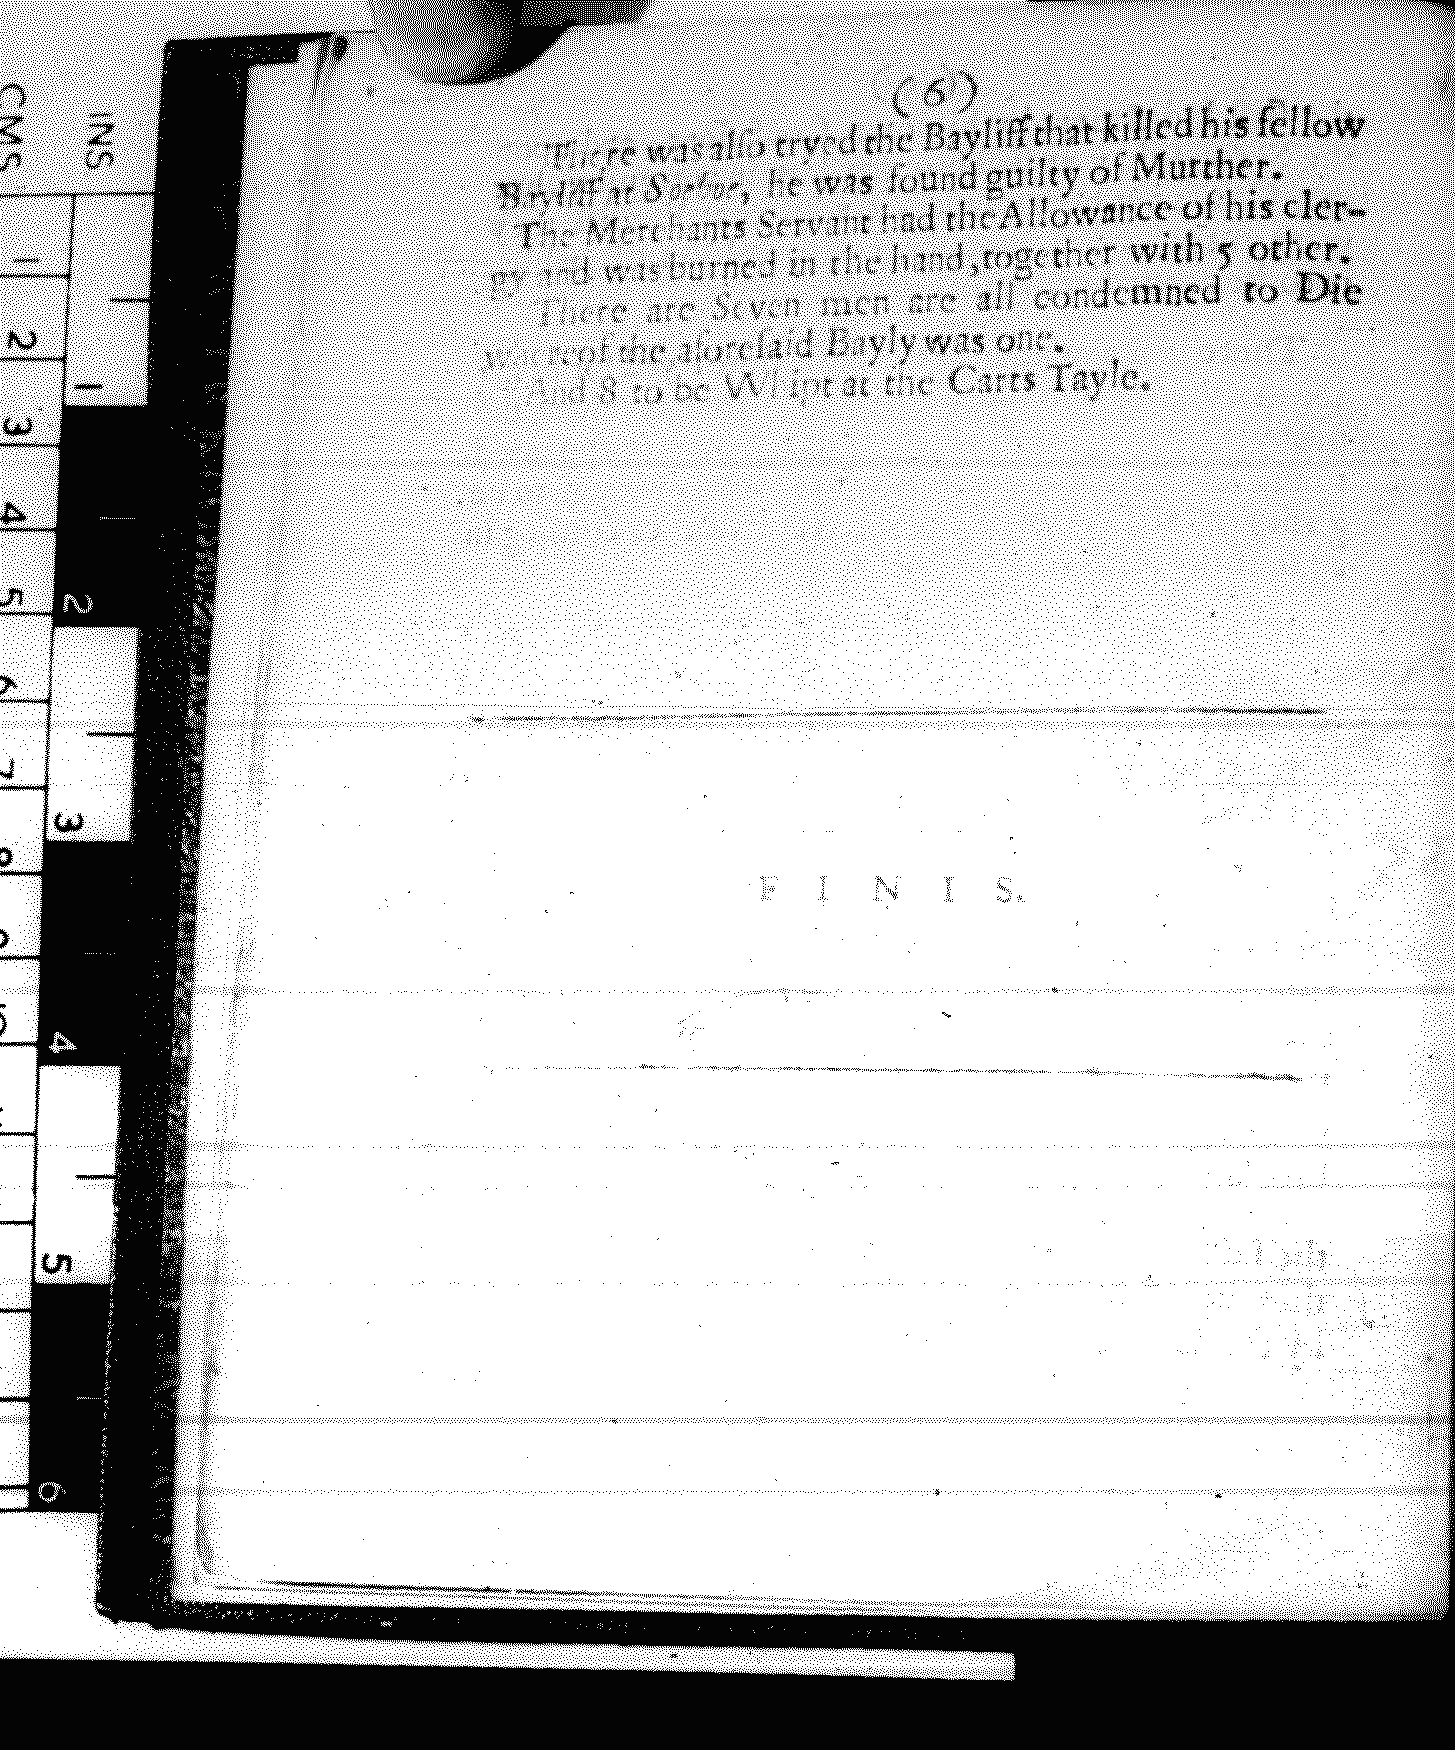 (6)
There was also tryed the Bayliff that killed his fellow
Bayliff at he was found guilty of Murther.
The Merchants Servant had the Allowance of his cler-
gy and was burned in the hand, together with 5 other.
There are Seven men are all condemned to Die
whereof the aforesaid Bayly was one.
And 8 to be Whipt at the Carts Tayle.
F I N I S.
CMS
INS
1
2
3
4
5
6
7
8
1
2
3
4
5
6